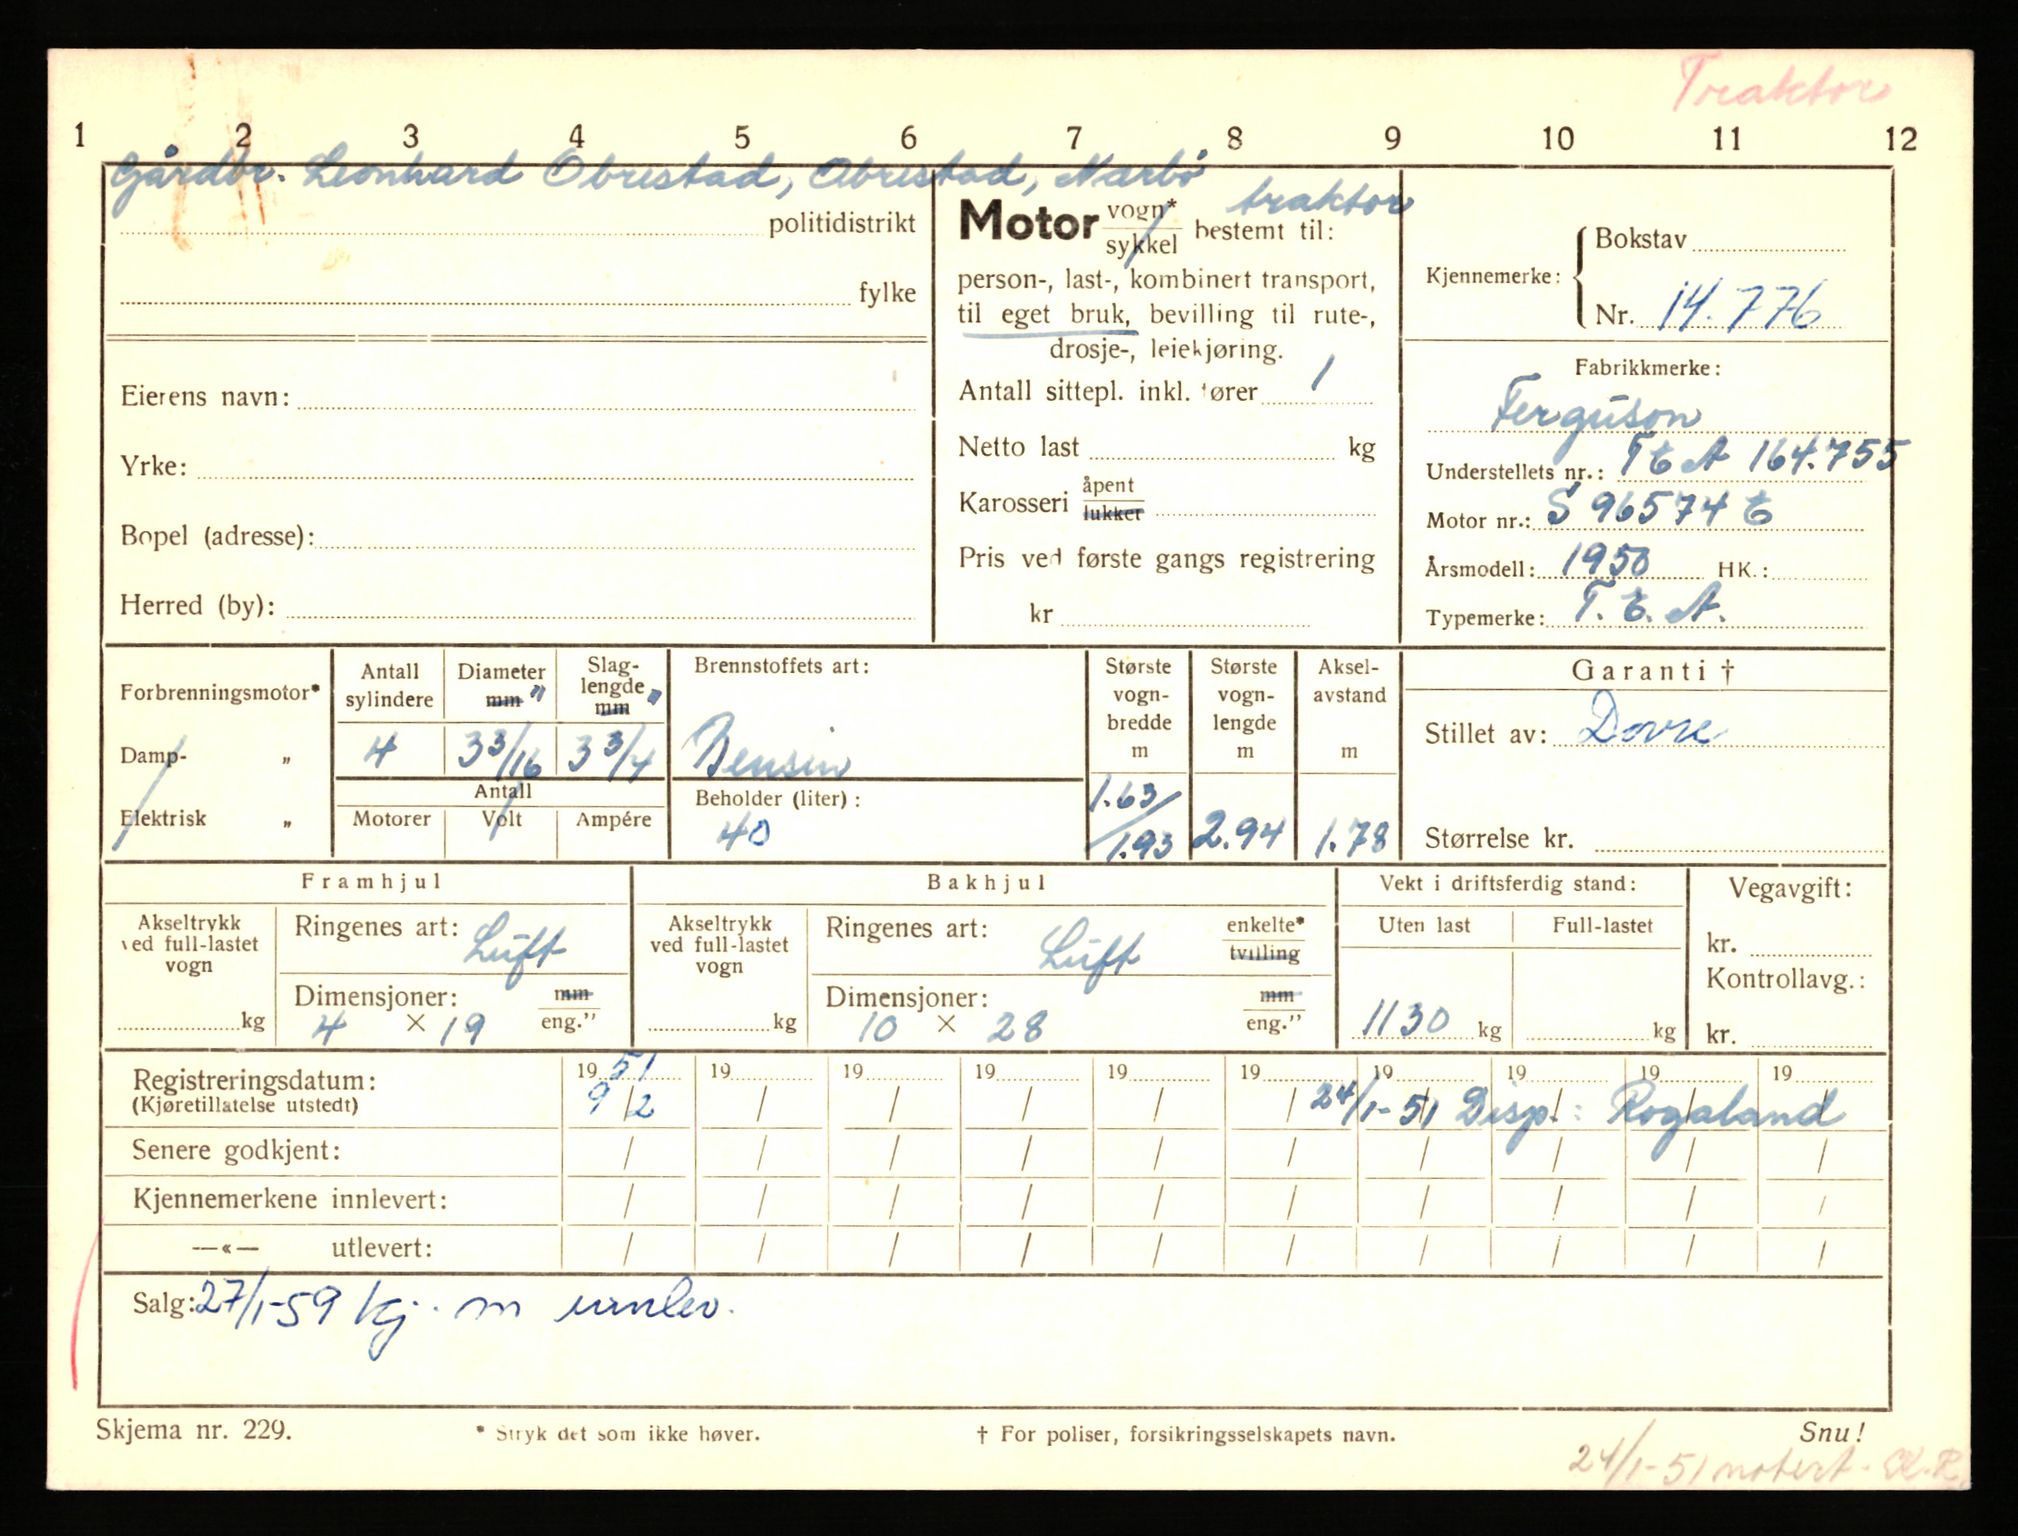 Traktor
1 2 3 4 5 6 7 8 9 10 11 12
Gårdbr. Leonhard Obrestad, Obrestad, Nærbö
politidistrikt
fylke
Eierens navn:
Yrke:
Bopel (adresse):
Herred (by):
traktor
Motor vogn* sykkel bestemt til:
person-, last-, kombinert transport,
til eget bruk, bevilling til rute-,
drosje-, leiekjøring.
Antall sittepl. inkl. fører 1
Netto last kg
Karosseri åpent lukket
Pris ved første gangs registrering
kr
Kjennemerke: Bokstav
Nr. 14.776
Fabrikkmerke:
Ferguson
Understellets nr.: T E A 164.755
Motor nr.: S 96574 E
Årsmodell: 1950 HK.:
Typemerke: T. E. A.
Forbrenningsmotor*
Damp- "
Elektrisk "
Antall sylindere
4
Diameter mm "
3 3/16
Slag-lengde mm "
3 3/4
Antall
Motorer Volt Ampére
Brennstoffets art:
Bensin
Beholder (liter):
40
Største vogn-bredde m
1.63/
/1.93
Største vogn-lengde m
2.94
Aksel-avstand m
1.78
Garanti †
Stillet av: Dovre
Størrelse kr.
Framhjul
Akseltrykk ved full-lastet vogn
kg
Ringenes art: Luft
Dimensjoner: mm eng."
4 × 19
Bakhjul
Akseltrykk ved full-lastet vogn
kg
Ringenes art: Luft enkelte* tvilling
Dimensjoner: mm eng."
10 × 28
Vekt i driftsferdig stand:
Uten last Full-lastet
1130 kg kg
Vegavgift:
kr.
Kontrollavg.:
kr.
Registreringsdatum: 19 51 19 19 19 19 19 19 19 19 19
(Kjøretillatelse utstedt) 9/2 / / / / / 24/1-51 Disp.: Rogaland
Senere godkjent: / / / / / / / / / /
Kjennemerkene innlevert: / / / / / / / / / /
—«— utlevert: / / / / / / / / / /
Salg: 27/1-59 kj. m innlev.
Skjema nr. 229. * Stryk det som ikke høver. † For poliser, forsikringsselskapets navn. Snu!
24/1-51 notert.